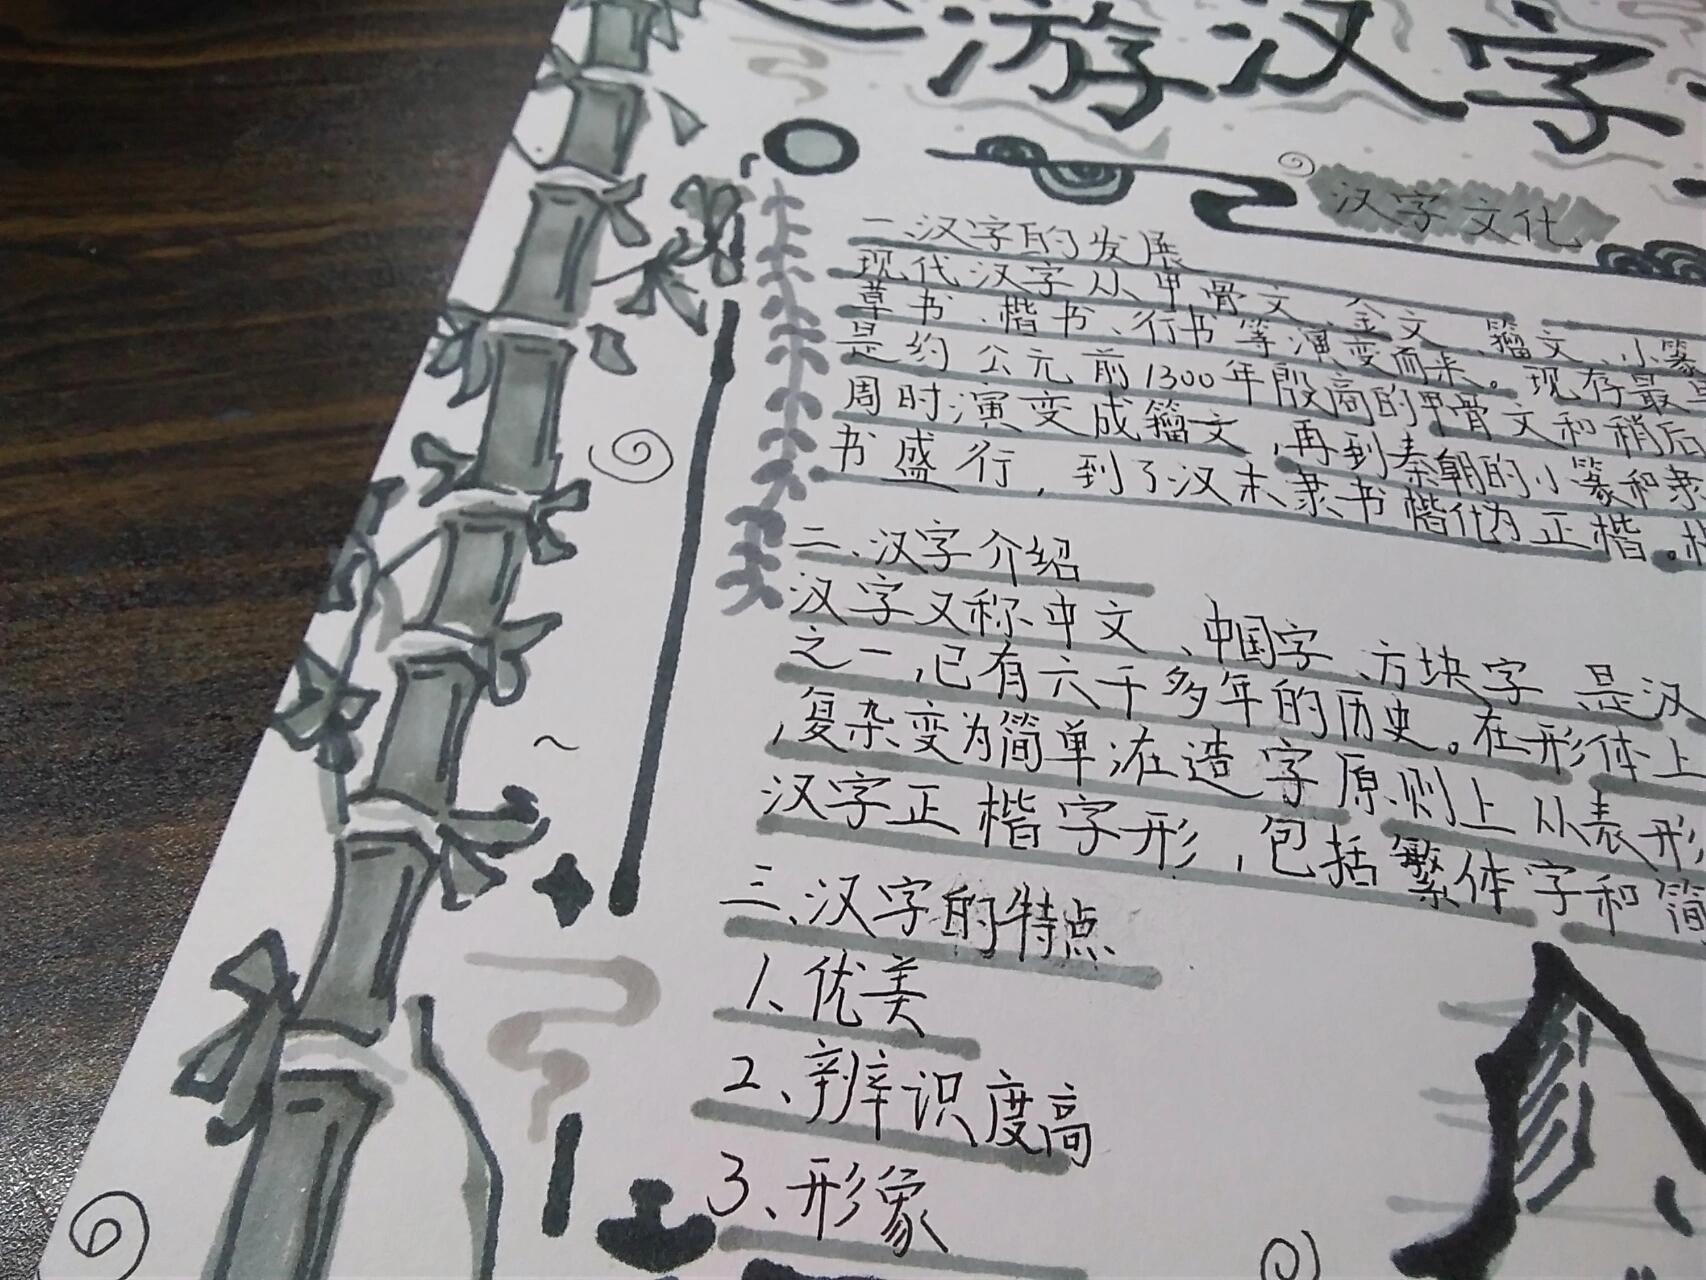 游汉字
汉字文化
一.汉字的发展
现代汉字从甲骨文、金文、籀文、小篆
草书、楷书、行书等演变而来。现存最早
是约公元前1300年殷商的甲骨文和稍后
周时演变成籀文,再到秦朝的小篆和隶
书盛行,到了汉末隶书楷化为正楷。楷
二、汉字介绍
汉字又称中文、中国字、方块字,是汉
之一,已有六千多年的历史。在形体上
,复杂变为简单;在造字原则上从表形,
汉字正楷字形,包括繁体字和简
三、汉字的特点
1、优美
2、辨识度高
3、形象